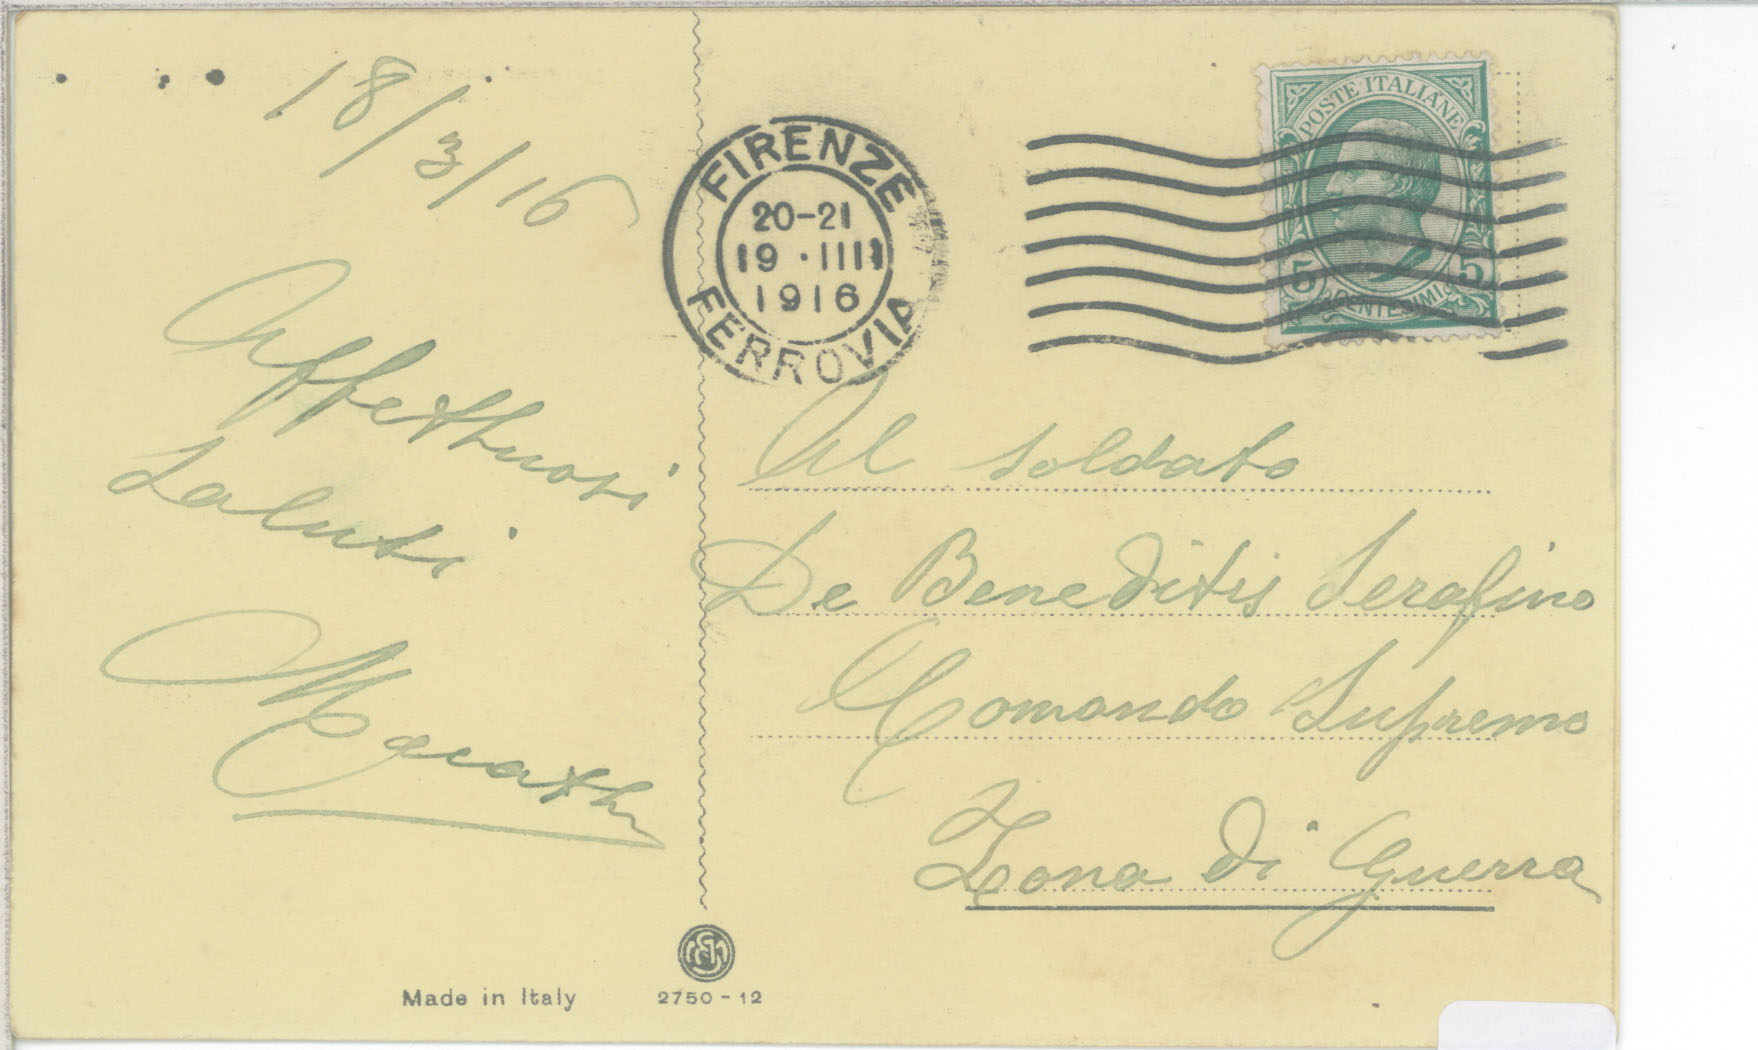 18/3/16
Affettuosi
Saluti
FIRENZE
20-21
19 · III
1916
FERROVIA
POSTE ITALIANE
5 5
CENTESIMI
Al soldato
De Beneditis Serafino
Comando Supremo
Zona di Guerra
Made in Italy
2750-12